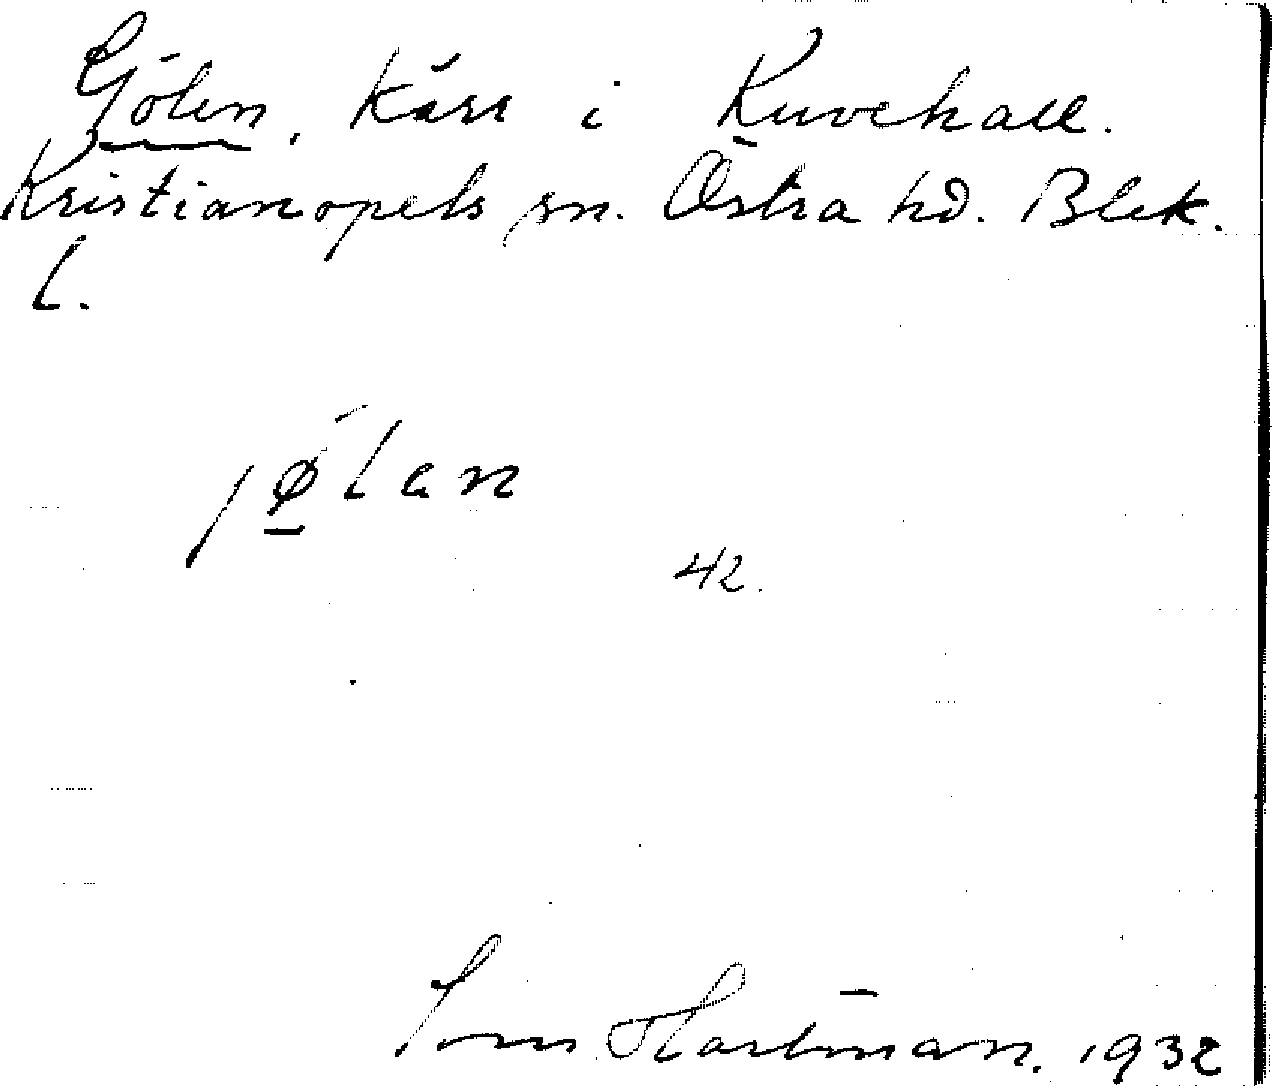 Gölen, Kärr i Kuvehall.
Kristianopels sn. Östra hd. Blek.
l.
jølan
42.
Hartman. 1932